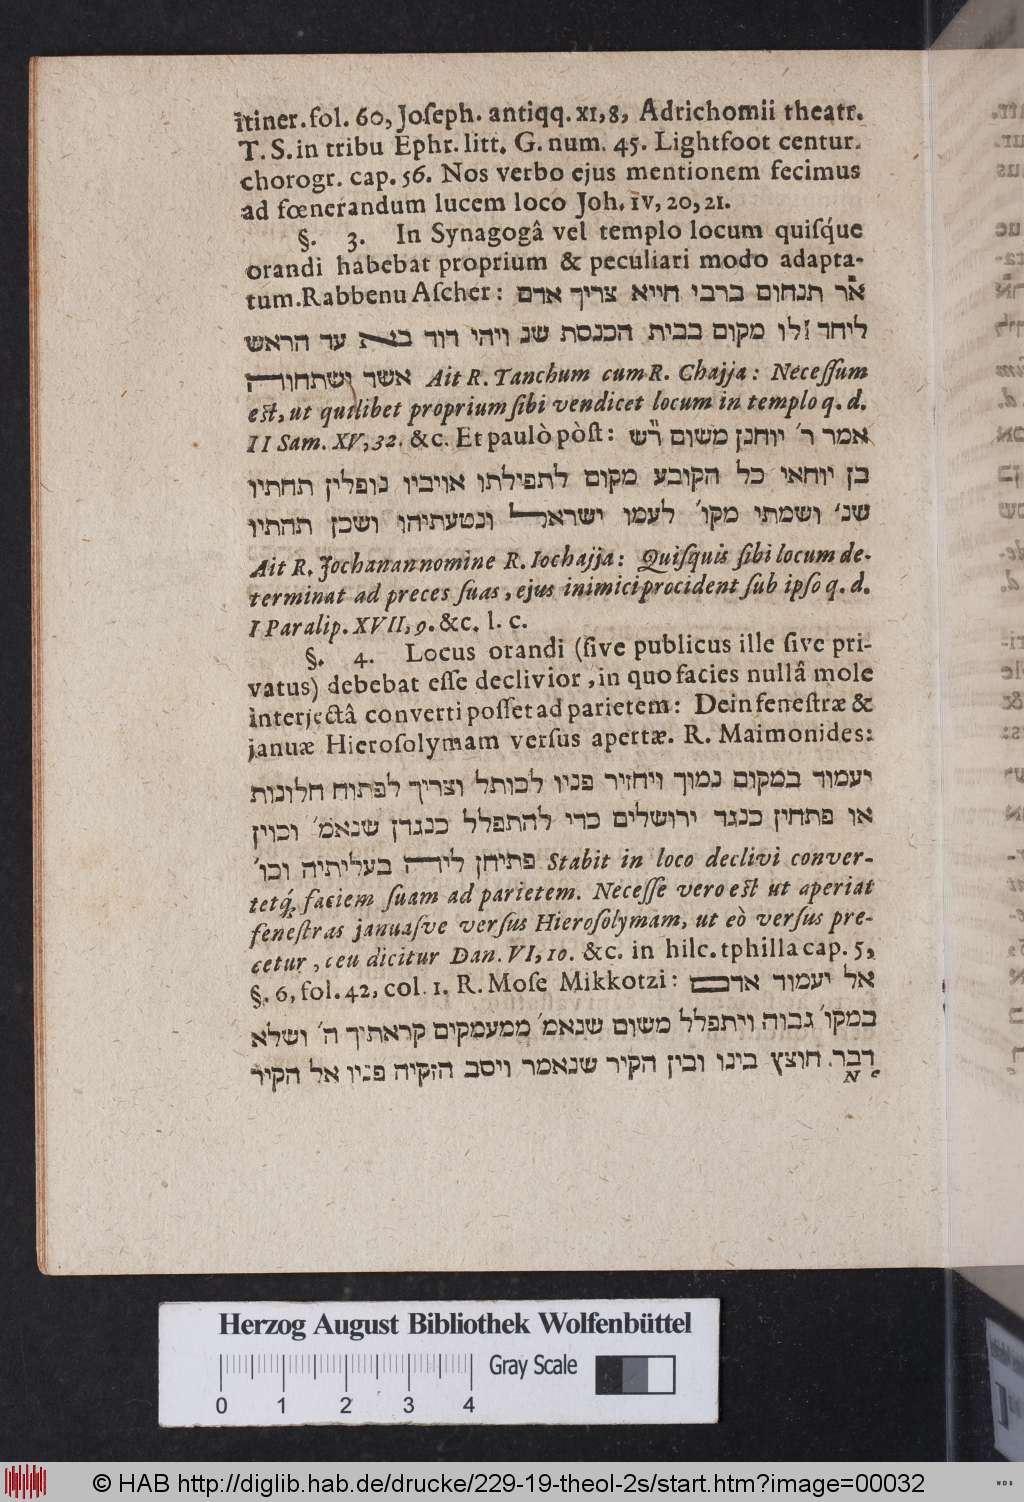 itiner. fol. 60, Joſeph. antiqq. XI, 8, Adrichomii theatr.
T. S. in tribu Ephr. litt. G. num. 45. Lightfoot centur.
chorogr. cap. 56. Nos verbo ejus mentionem fecimus
ad fœnerandum lucem loco Joh. IV, 20, 21.
§. 3. In Synagogâ vel templo locum quiſq́ue
orandi habebat proprium & peculiari modo adapta-
tum. Rabbenu Aſcher: א"ר תנחום ברבי חייא צריך אדם
ליחד לו מקום בבית הכנסת שנ ויהי דוד בא עד הראש
אשר ישתחוה Ait R. Tanchum cum R. Chajja: Neceſſum
eſt, ut quilibet proprium ſibi vendicet locum in templo q. d.
II Sam. XV, 32. &c. Et paulò pòſt: אמר ר׳ יוחנן משום ר"ש
בן יוחאי כל הקובע מקום לתפילתו אויביו נופלין תחתיו
שנ׳ ושמתי מקו׳ לעמו ישראל ונטעתיהו ושכן תחתיו
Ait R. Jochanan nomine R. Iochajja: Quiſquis ſibi locum de-
terminat ad preces ſuas, ejus inimici procident ſub ipſo q. d.
I Paralip. XVII, 9. &c. l. c.
§. 4. Locus orandi (ſive publicus ille ſive pri-
vatus) debebat eſſe declivior, in quo facies nullâ mole
interjectâ converti poſſet ad parietem: Dein feneſtræ &
januæ Hieroſolymam verſus apertæ. R. Maimonides:
יעמוד במקום נמוך ויחזיר פניו לכותל וצריך לפתוח חלונות
או פתחין כנגד ירושלים כדי להתפלל כנגדן שנאמ׳ וכוין
פתיחן ליה בעליתיה וכו׳ Stabit in loco declivi conver-
tetq́; faciem ſuam ad parietem. Neceſſe vero eſt ut aperiat
feneſtras januaſve verſus Hieroſolymam, ut eò verſus pre-
cetur, ceu dicitur Dan. VI, 10. &c. in hilc. tphilla cap. 5,
§. 6, fol. 42, col. 1. R. Moſe Mikkotzi: אל יעמוד אדם
במקו׳ גבוה ויתפלל משום שנאמ׳ ממעמקים קראתיך ה׳ ושלא
דבר חוצץ בינו ובין הקיר שנאמר ויסב חזקיה פניו אל הקיר
א
Herzog August Bibliothek Wolfenbüttel
Gray Scale
0 1 2 3 4
© HAB http://diglib.hab.de/drucke/229-19-theol-2s/start.htm?image=00032